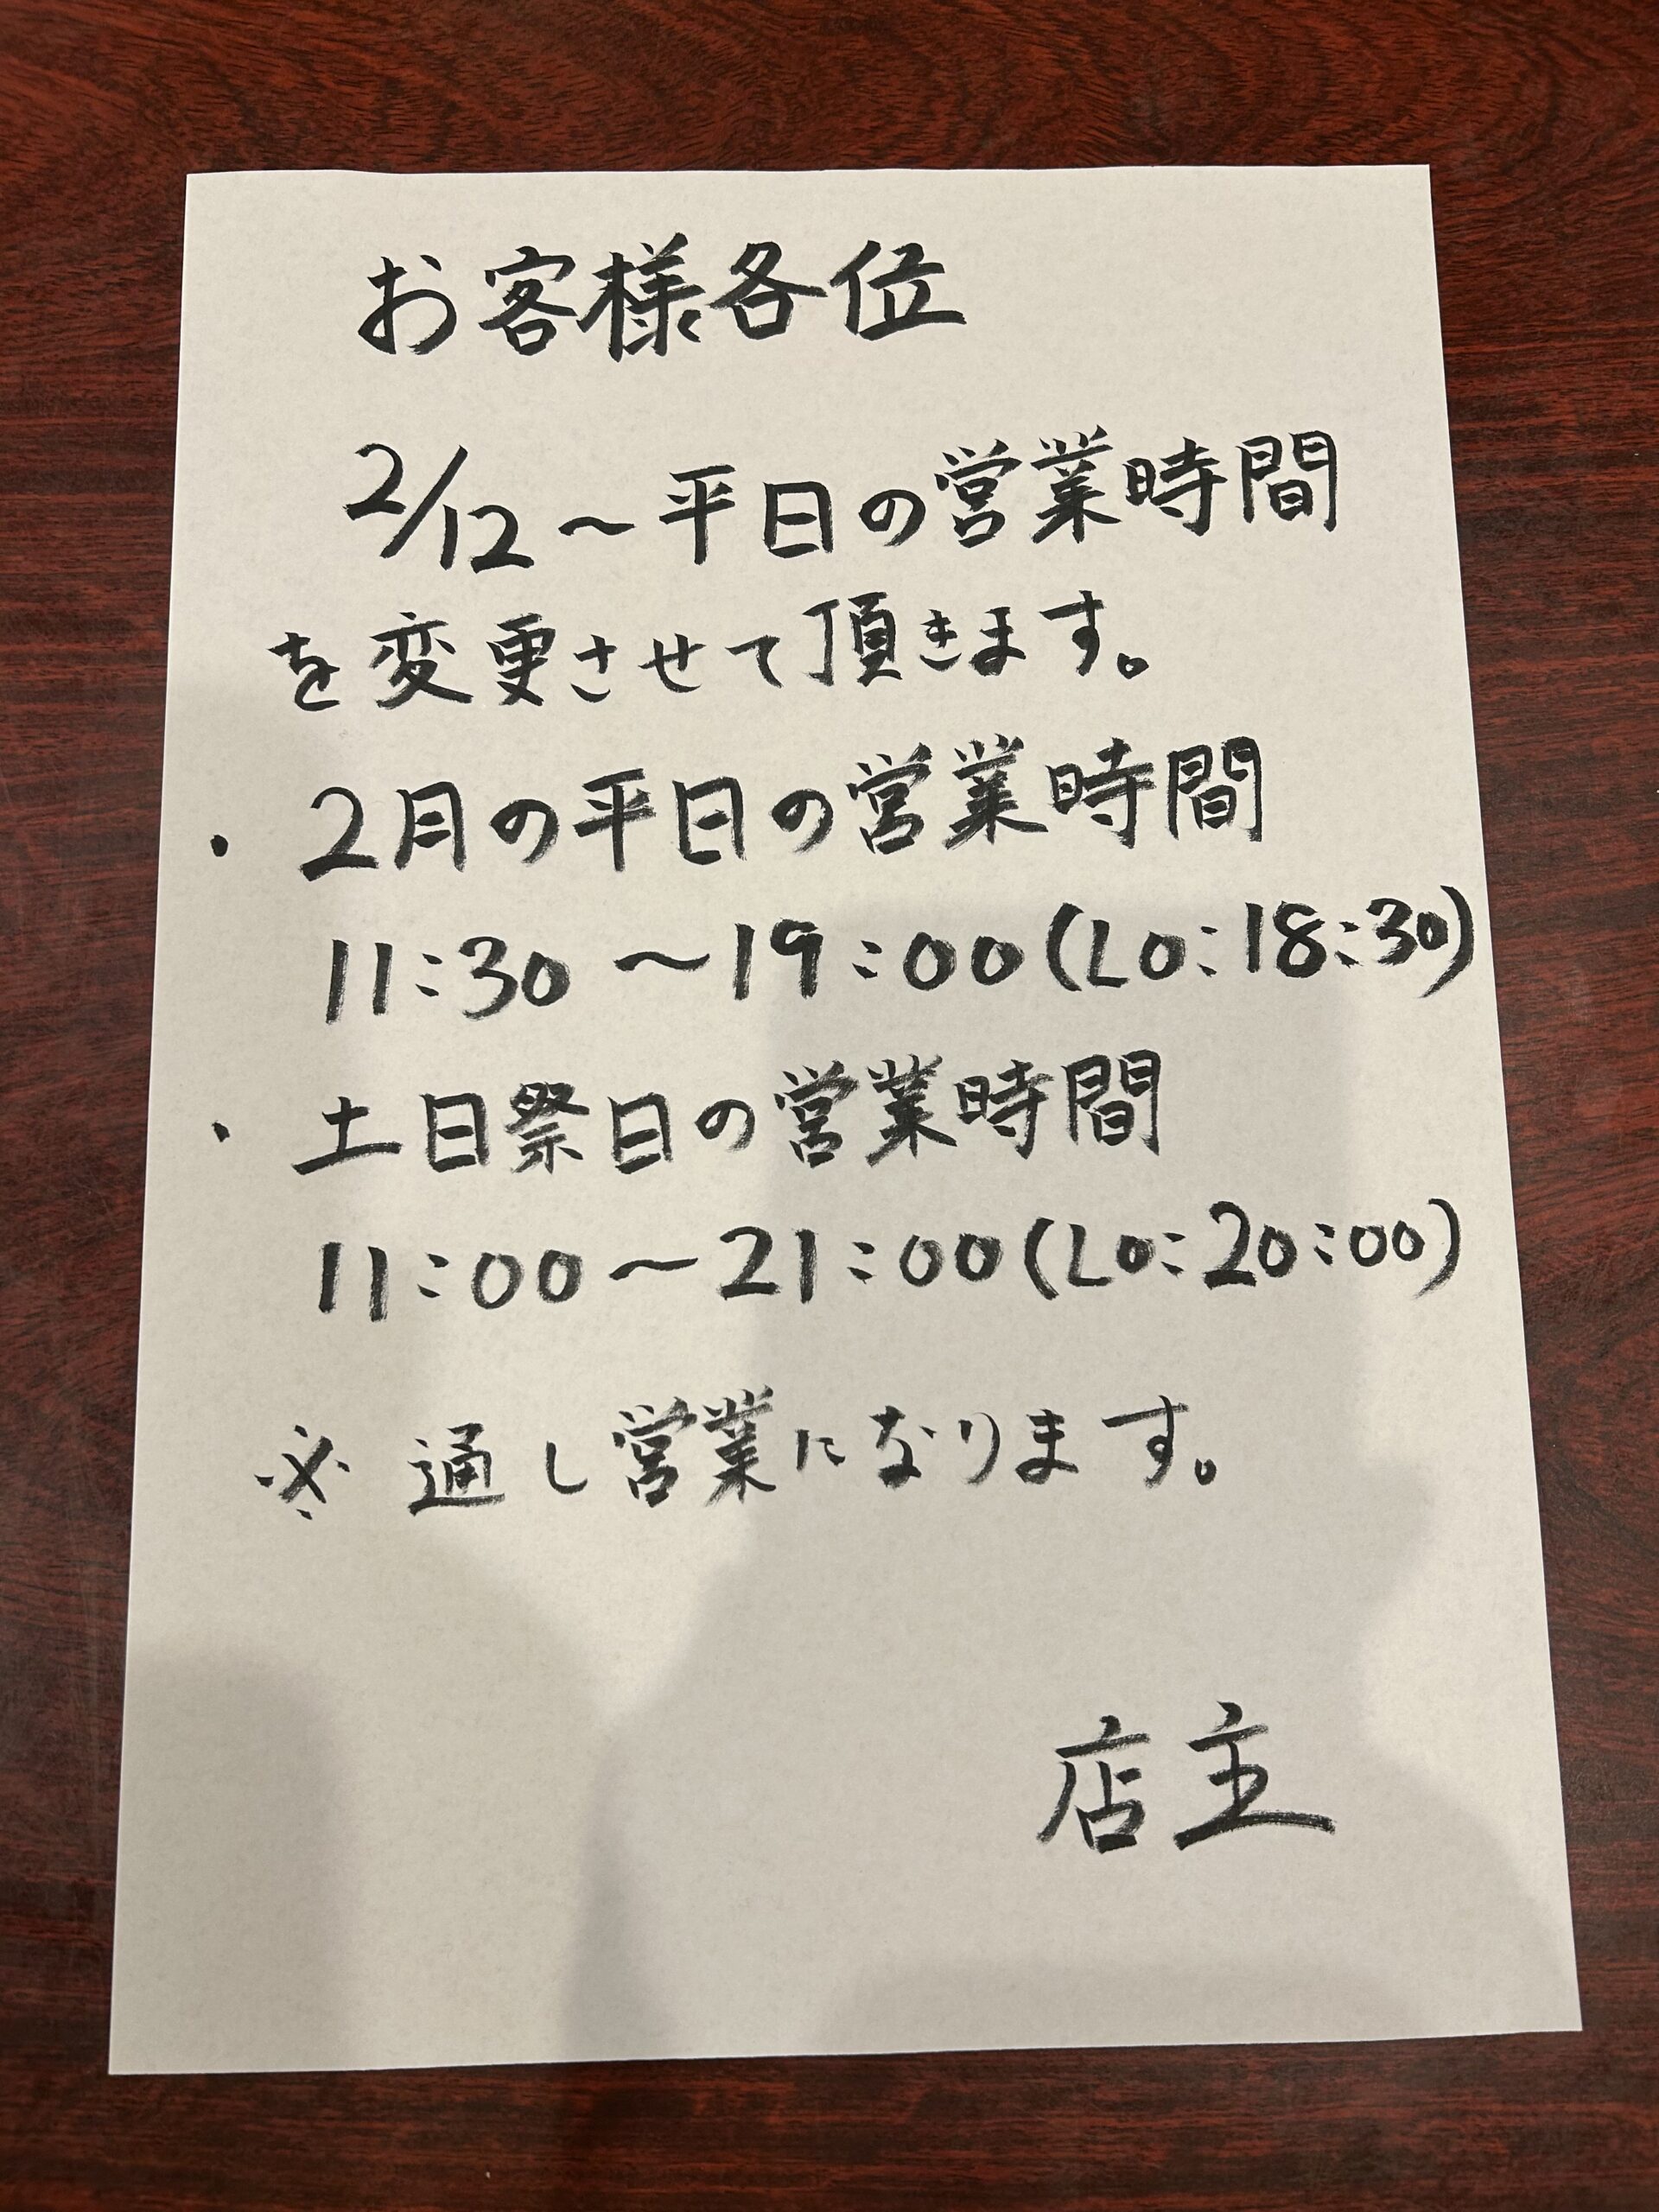 お客様各位
2/12～平日の営業時間
を変更させて頂きます。
・2月の平日の営業時間
11:30～19:00(LO:18:30)
・土日祭日の営業時間
11:00～21:00(LO:20:00)
※通し営業になります。
店主